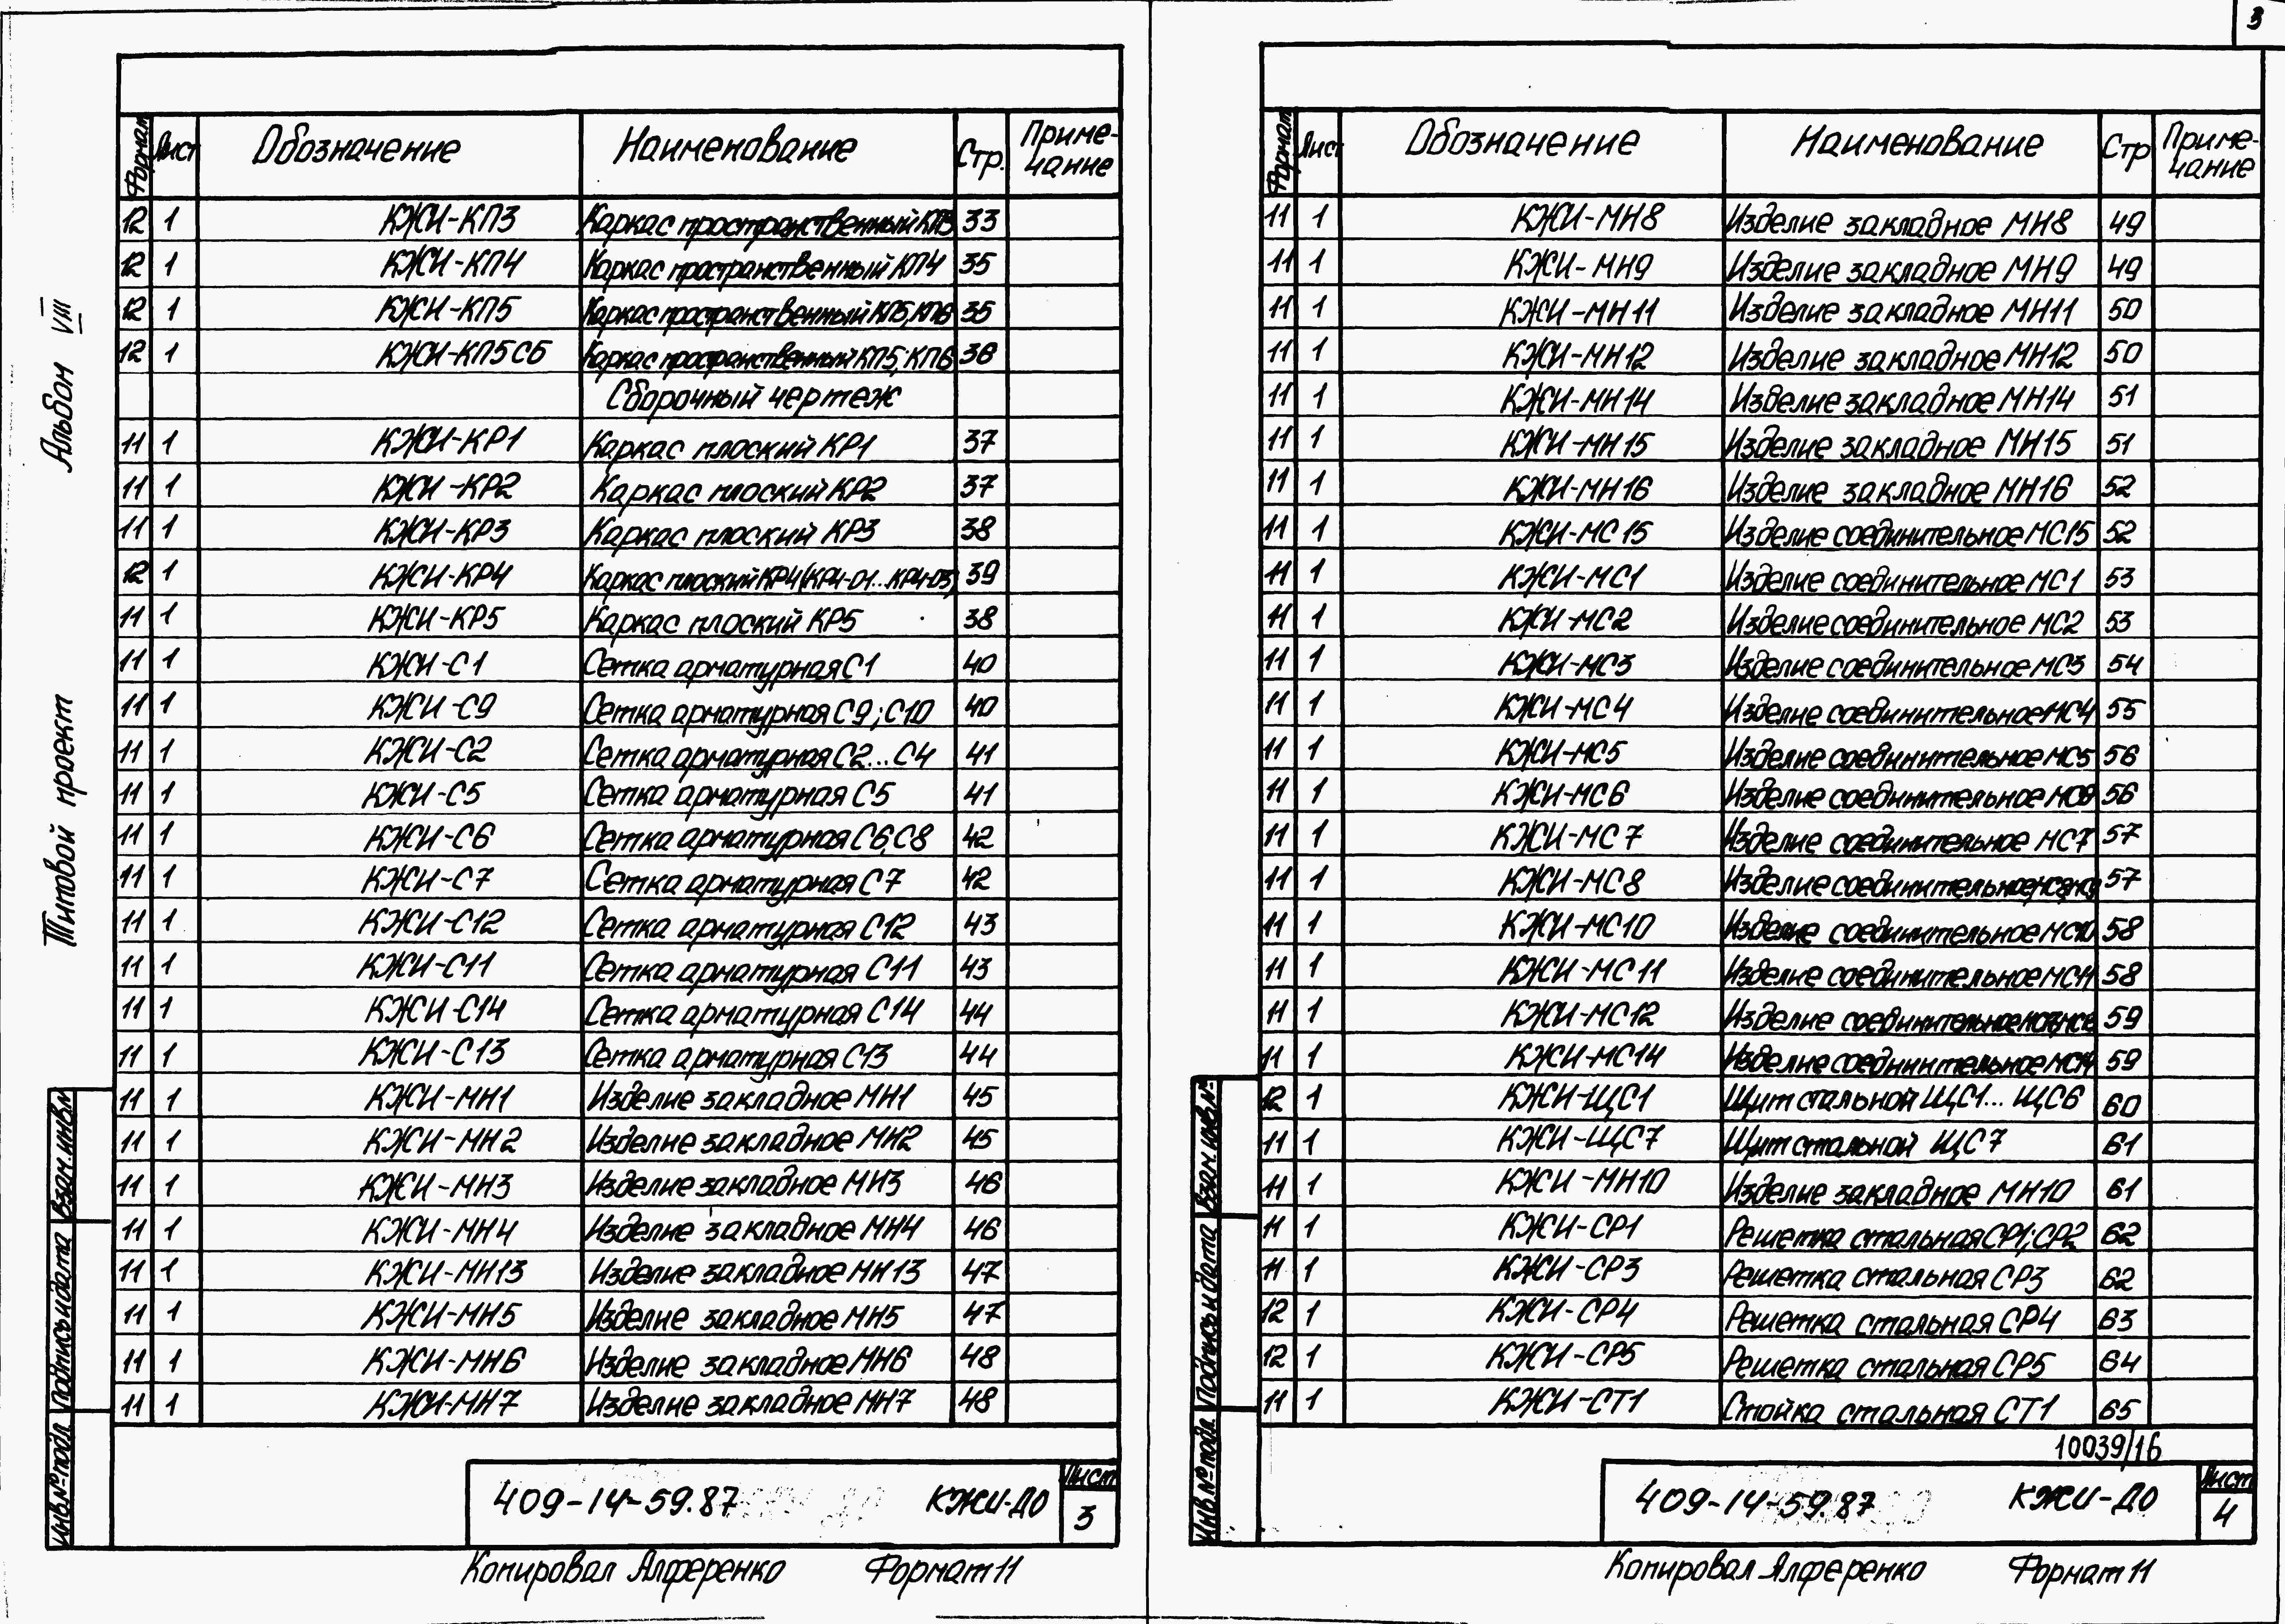 3
Альбом VIII
Типовой проект
Формат Лист Обозначение Наименование Стр. Примечание
12 1 КЖИ-КП3 Каркас пространственный КП3 33
12 1 КЖИ-КП4 Каркас пространственный КП4 35
12 1 КЖИ-КП5 Каркас пространственный КП5, КП6 35
12 1 КЖИ-КП5СБ Каркас пространственный КП5; КП6 36
Сборочный чертеж
11 1 КЖИ-КР1 Каркас плоский КР1 37
11 1 КЖИ-КР2 Каркас плоский КР2 37
11 1 КЖИ-КР3 Каркас плоский КР3 38
12 1 КЖИ-КР4 Каркас плоский КР4 (КР4-01...КР4-03) 39
11 1 КЖИ-КР5 Каркас плоский КР5 38
11 1 КЖИ-С1 Сетка арматурная С1 40
11 1 КЖИ-С9 Сетка арматурная С9; С10 40
11 1 КЖИ-С2 Сетка арматурная С2...С4 41
11 1 КЖИ-С5 Сетка арматурная С5 41
11 1 КЖИ-С6 Сетка арматурная С6, С8 42
11 1 КЖИ-С7 Сетка арматурная С7 42
11 1 КЖИ-С12 Сетка арматурная С12 43
11 1 КЖИ-С11 Сетка арматурная С11 43
11 1 КЖИ-С14 Сетка арматурная С14 44
11 1 КЖИ-С13 Сетка арматурная С13 44
11 1 КЖИ-МН1 Изделие закладное МН1 45
11 1 КЖИ-МН2 Изделие закладное МН2 45
11 1 КЖИ-МН3 Изделие закладное МН3 46
11 1 КЖИ-МН4 Изделие закладное МН4 46
11 1 КЖИ-МН13 Изделие закладное МН13 47
11 1 КЖИ-МН5 Изделие закладное МН5 47
11 1 КЖИ-МН6 Изделие закладное МН6 48
11 1 КЖИ-МН7 Изделие закладное МН7 48
Инв.№ подл. Подпись и дата Взам.инв.№
409-14-59.87 КЖИ-ДО Лист
3
Копировал Алференко Формат 11
Формат Лист Обозначение Наименование Стр Примечание
11 1 КЖИ-МН8 Изделие закладное МН8 49
11 1 КЖИ-МН9 Изделие закладное МН9 49
11 1 КЖИ-МН11 Изделие закладное МН11 50
11 1 КЖИ-МН12 Изделие закладное МН12 50
11 1 КЖИ-МН14 Изделие закладное МН14 51
11 1 КЖИ-МН15 Изделие закладное МН15 51
11 1 КЖИ-МН16 Изделие закладное МН16 52
11 1 КЖИ-МС15 Изделие соединительное МС15 52
11 1 КЖИ-МС1 Изделие соединительное МС1 53
11 1 КЖИ-МС2 Изделие соединительное МС2 53
11 1 КЖИ-МС3 Изделие соединительное МС3 54
11 1 КЖИ-МС4 Изделие соединительное МС4 55
11 1 КЖИ-МС5 Изделие соединительное МС5 56
11 1 КЖИ-МС6 Изделие соединительное МС6 56
11 1 КЖИ-МС7 Изделие соединительное МС7 57
11 1 КЖИ-МС8 Изделие соединительное 57
11 1 КЖИ-МС10 Изделие соединительное МС10 58
11 1 КЖИ-МС11 Изделие соединительное МС11 58
11 1 КЖИ-МС12 Изделие соединительное 59
11 1 КЖИ-МС14 Изделие соединительное МС14 59
12 1 КЖИ-ЩС1 Щит стальной ЩС1...ЩС6 60
11 1 КЖИ-ЩС7 Щит стальной ЩС7 61
11 1 КЖИ-МН10 Изделие закладное МН10 61
11 1 КЖИ-СР1 Решетка стальная СР1; СР2 62
11 1 КЖИ-СР3 Решетка стальная СР3 62
12 1 КЖИ-СР4 Решетка стальная СР4 63
12 1 КЖИ-СР5 Решетка стальная СР5 64
11 1 КЖИ-СТ1 Стойка стальная СТ1 65
10039/16
Инв.№ подл. Подпись и дата Взам.инв.№
409-14-59.87 КЖИ-ДО Лист
4
Копировал Алференко Формат 11